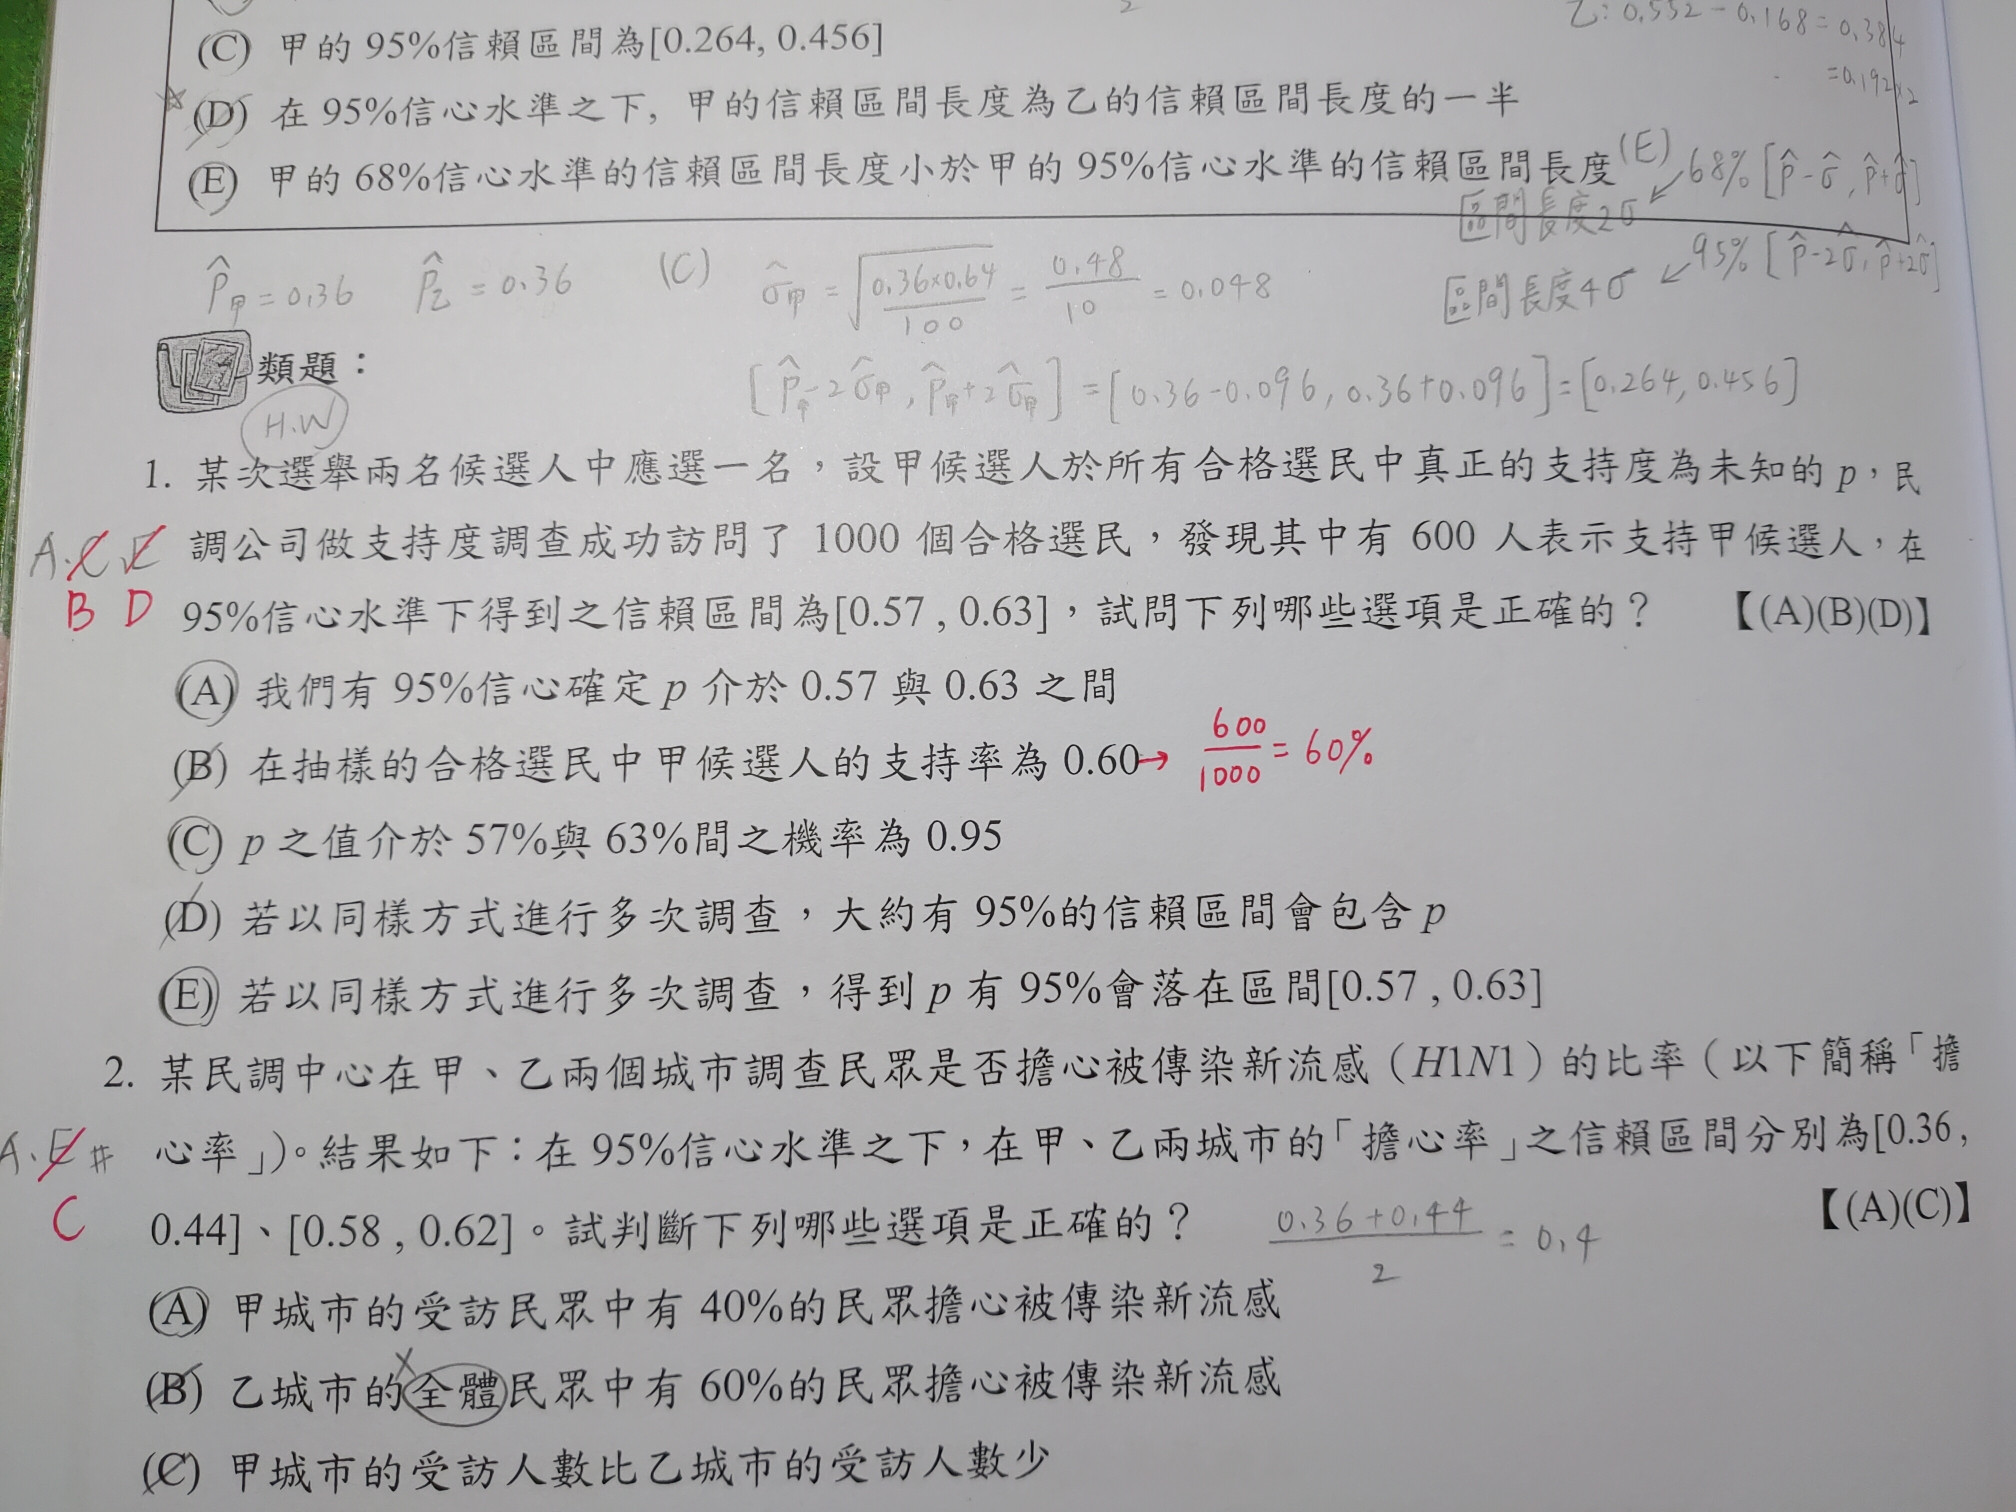 2
乙: 0.552 - 0.168 = 0.384
= 0.192×2
(C) 甲的 95%信賴區間為[0.264, 0.456]
☆(D) 在 95%信心水準之下, 甲的信賴區間長度為乙的信賴區間長度的一半
(E) 甲的 68%信心水準的信賴區間長度小於甲的 95%信心水準的信賴區間長度
(E) 68% [p̂-σ̂, p̂+σ̂]
區間長度2σ
95% [p̂-2σ̂, p̂+2σ̂]
區間長度4σ
p̂甲 = 0.36 p̂乙 = 0.36 (C) σ̂甲 = √(0.36×0.64/100) = 0.48/10 = 0.048
類題：
[p̂甲-2σ̂甲, p̂甲+2σ̂甲] = [0.36-0.096, 0.36+0.096] = [0.264, 0.456]
H.W
1. 某次選舉兩名候選人中應選一名，設甲候選人於所有合格選民中真正的支持度為未知的 p，民
A.C E 調公司做支持度調查成功訪問了 1000 個合格選民，發現其中有 600 人表示支持甲候選人，在
B D 95%信心水準下得到之信賴區間為[0.57 , 0.63]，試問下列哪些選項是正確的？ 【(A)(B)(D)】
(A) 我們有 95%信心確定 p 介於 0.57 與 0.63 之間
(B) 在抽樣的合格選民中甲候選人的支持率為 0.60→ 600/1000 = 60%
(C) p 之值介於 57%與 63%間之機率為 0.95
(D) 若以同樣方式進行多次調查，大約有 95%的信賴區間會包含 p
(E) 若以同樣方式進行多次調查，得到 p 有 95%會落在區間[0.57 , 0.63]
2. 某民調中心在甲、乙兩個城市調查民眾是否擔心被傳染新流感（H1N1）的比率（以下簡稱「擔
A.E # 心率」）。結果如下：在 95%信心水準之下，在甲、乙兩城市的「擔心率」之信賴區間分別為[0.36 ,
C 0.44]、[0.58 , 0.62]。試判斷下列哪些選項是正確的？ (0.36+0.44)/2 = 0.4 【(A)(C)】
(A) 甲城市的受訪民眾中有 40%的民眾擔心被傳染新流感
(B) 乙城市的全體民眾中有 60%的民眾擔心被傳染新流感
(C) 甲城市的受訪人數比乙城市的受訪人數少